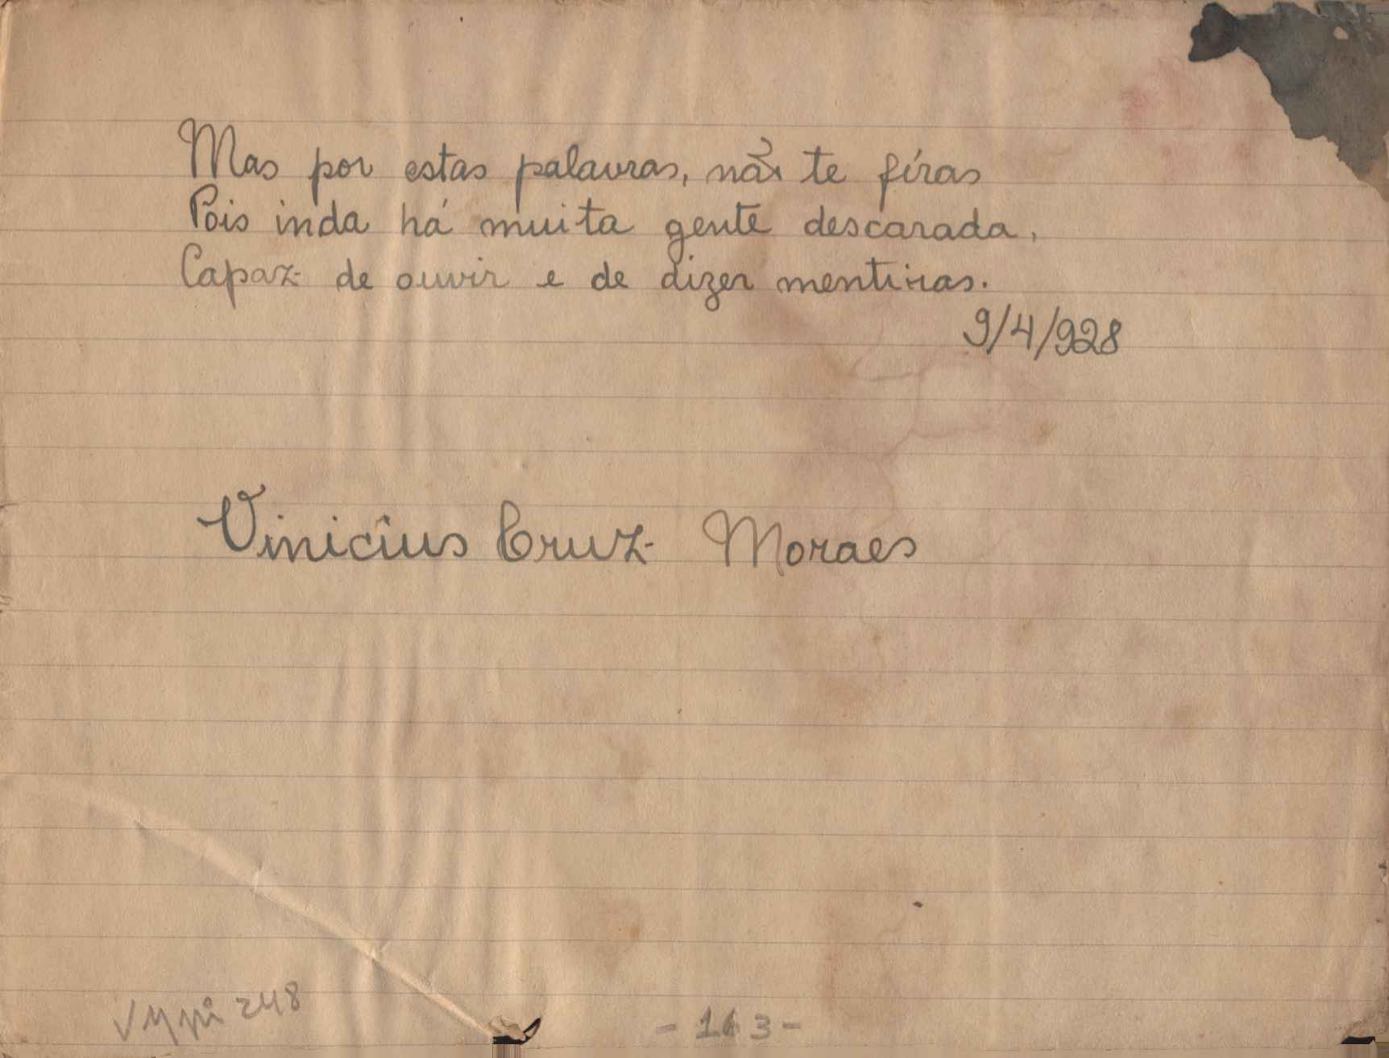 Mas por estas palavras, não te firas
Pois inda há muita gente descarada,
Capaz de ouvir e de dizer mentiras.
9/4/928
Vinicius Cruz Moraes
VMpi 248
- 163 -